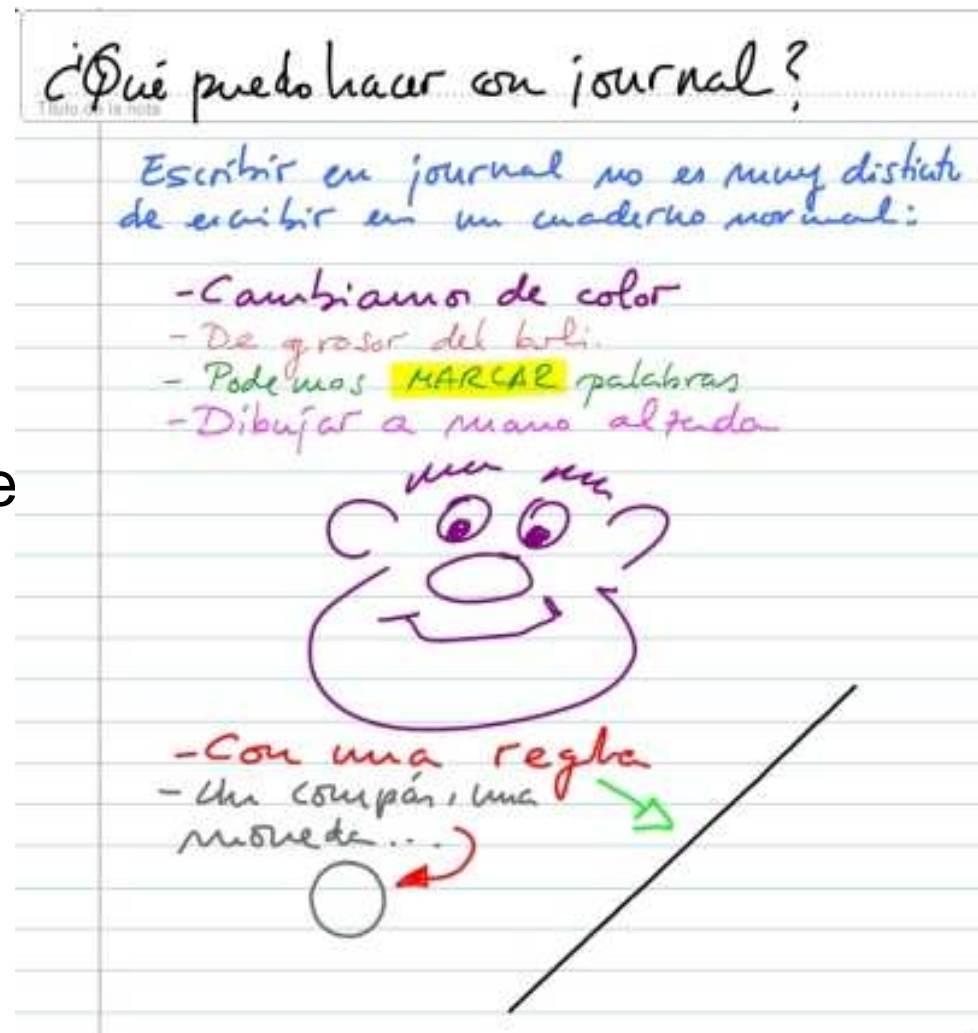 ¿Qué puedo hacer con journal?
Título de la nota
Escribir en journal no es muy distinto
de escribir en un cuaderno normal:
-Cambiamos de color
- De grosor del boli.
- Podemos MARCAR palabras
-Dibujar a mano alzada
e
-Con una regla
- Un compás, una
moneda...